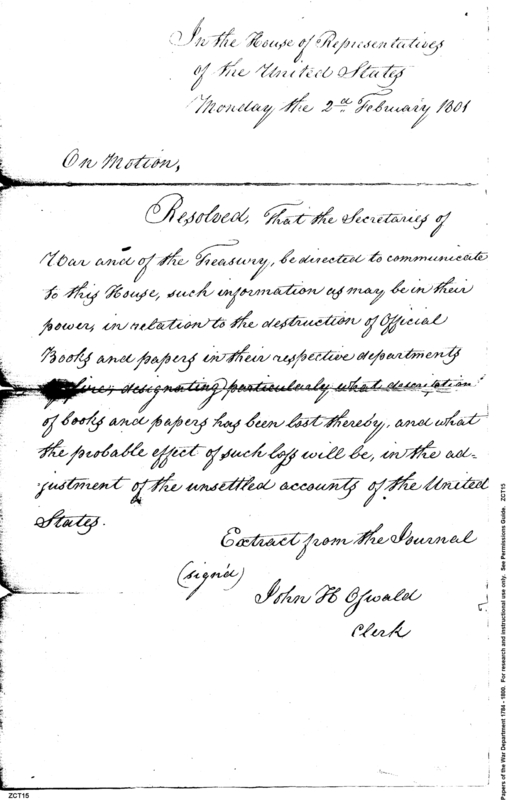 In the House of Representatives
of the United States
Monday the 2d February 1801
On Motion,
Resolved, That the Secretaries of
War and of the Treasury, be directed to communicate
to this House, such information as may be in their
power, in relation to the destruction of Official
Books and papers in their respective departments
by fire; designating particularly what description
of books and papers has been lost thereby, and what
the probable effect of such loss will be, in the ad-
justment of the unsettled accounts of the United
States.
Extract from the Journal
(sign'd)
John H Oswald
Clerk
Papers of the War Department 1784 - 1800. For research and instructional use only. See Permissions Guide. ZCT15
ZCT15